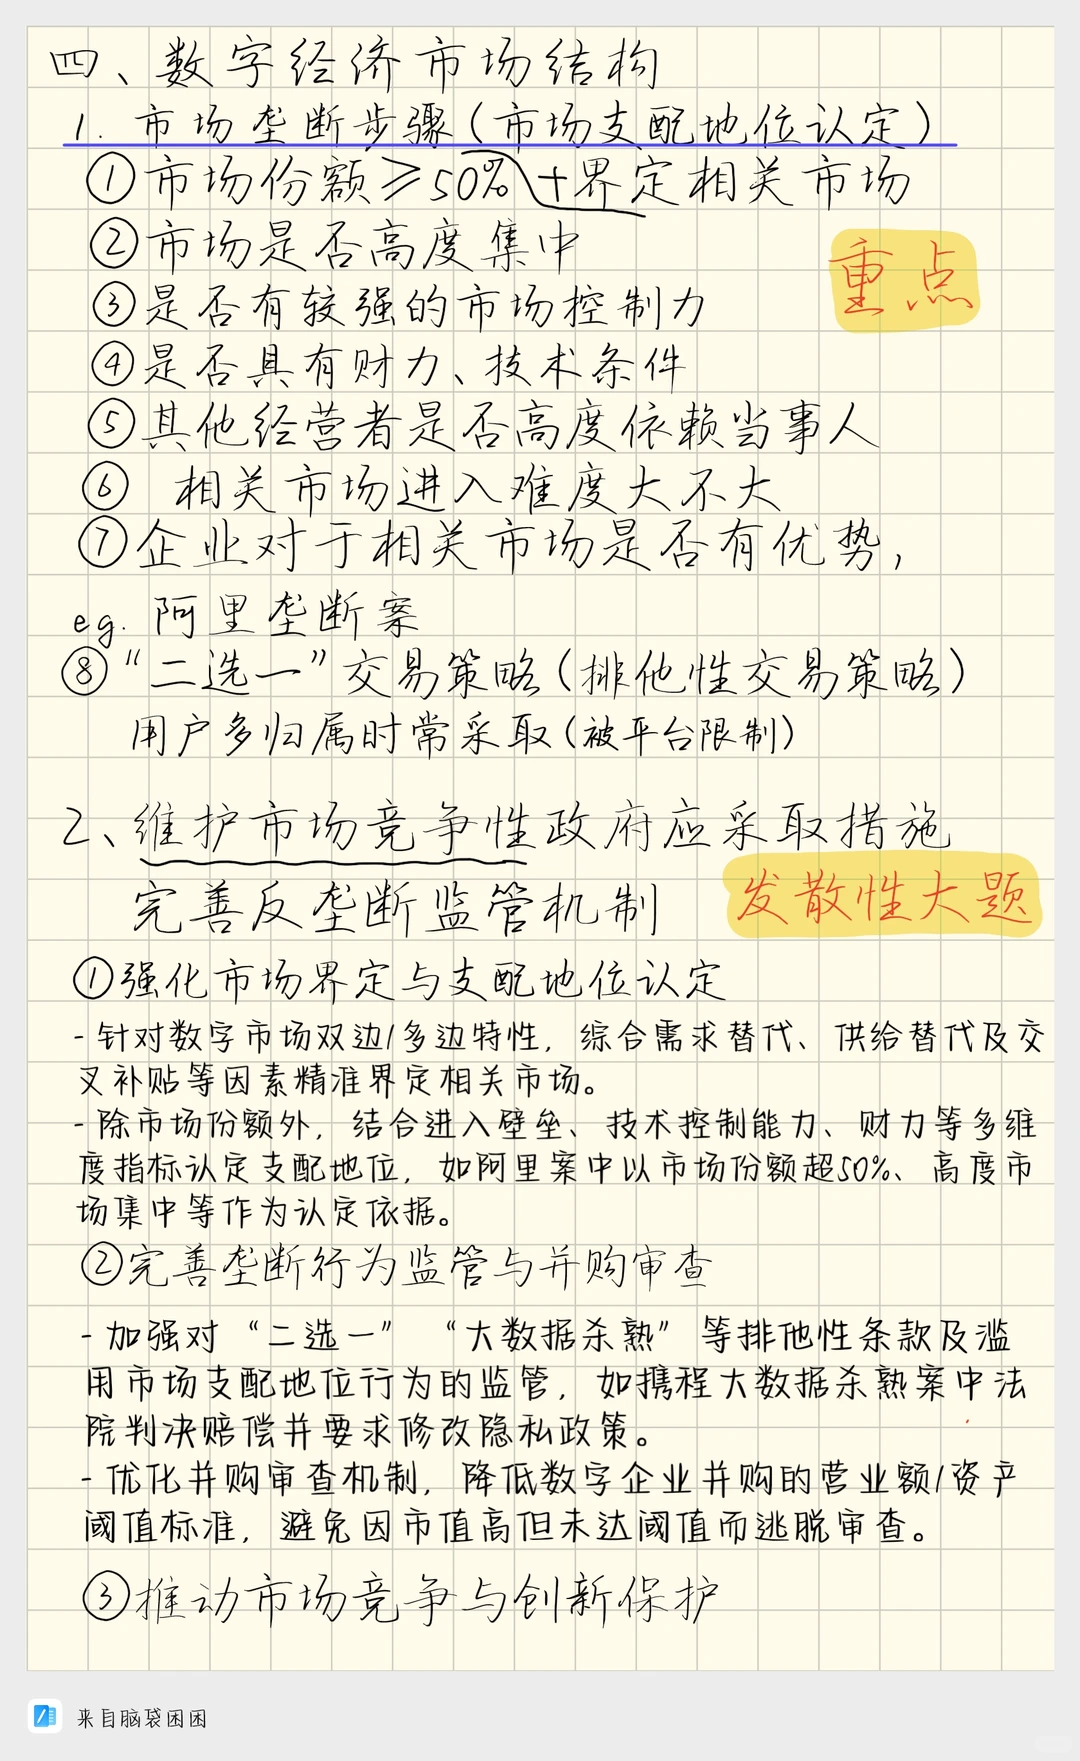 四、数字经济市场结构
1. 市场垄断步骤(市场支配地位认定)
①市场份额≥50%+界定相关市场
②市场是否高度集中
重点
③是否有较强的市场控制力
④是否具有财力、技术条件
⑤其他经营者是否高度依赖当事人
⑥ 相关市场进入难度大不大
⑦企业对于相关市场是否有优势,
eg. 阿里垄断案
⑧“二选一”交易策略(排他性交易策略)
用户多归属时常采取(被平台限制)
2、维护市场竞争性政府应采取措施
完善反垄断监管机制
发散性大题
①强化市场界定与支配地位认定
-针对数字市场双边/多边特性,综合需求替代、供给替代及交
叉补贴等因素精准界定相关市场。
-除市场份额外,结合进入壁垒、技术控制能力、财力等多维
度指标认定支配地位,如阿里案中以市场份额超50%、高度市
场集中等作为认定依据。
②完善垄断行为监管与并购审查
-加强对“二选一”“大数据杀熟”等排他性条款及滥
用市场支配地位行为的监管,如携程大数据杀熟案中法
院判决赔偿并要求修改隐私政策。
-优化并购审查机制,降低数字企业并购的营业额/资产
阈值标准,避免因市值高但未达阈值而逃脱审查。
③推动市场竞争与创新保护
来自脑袋困困